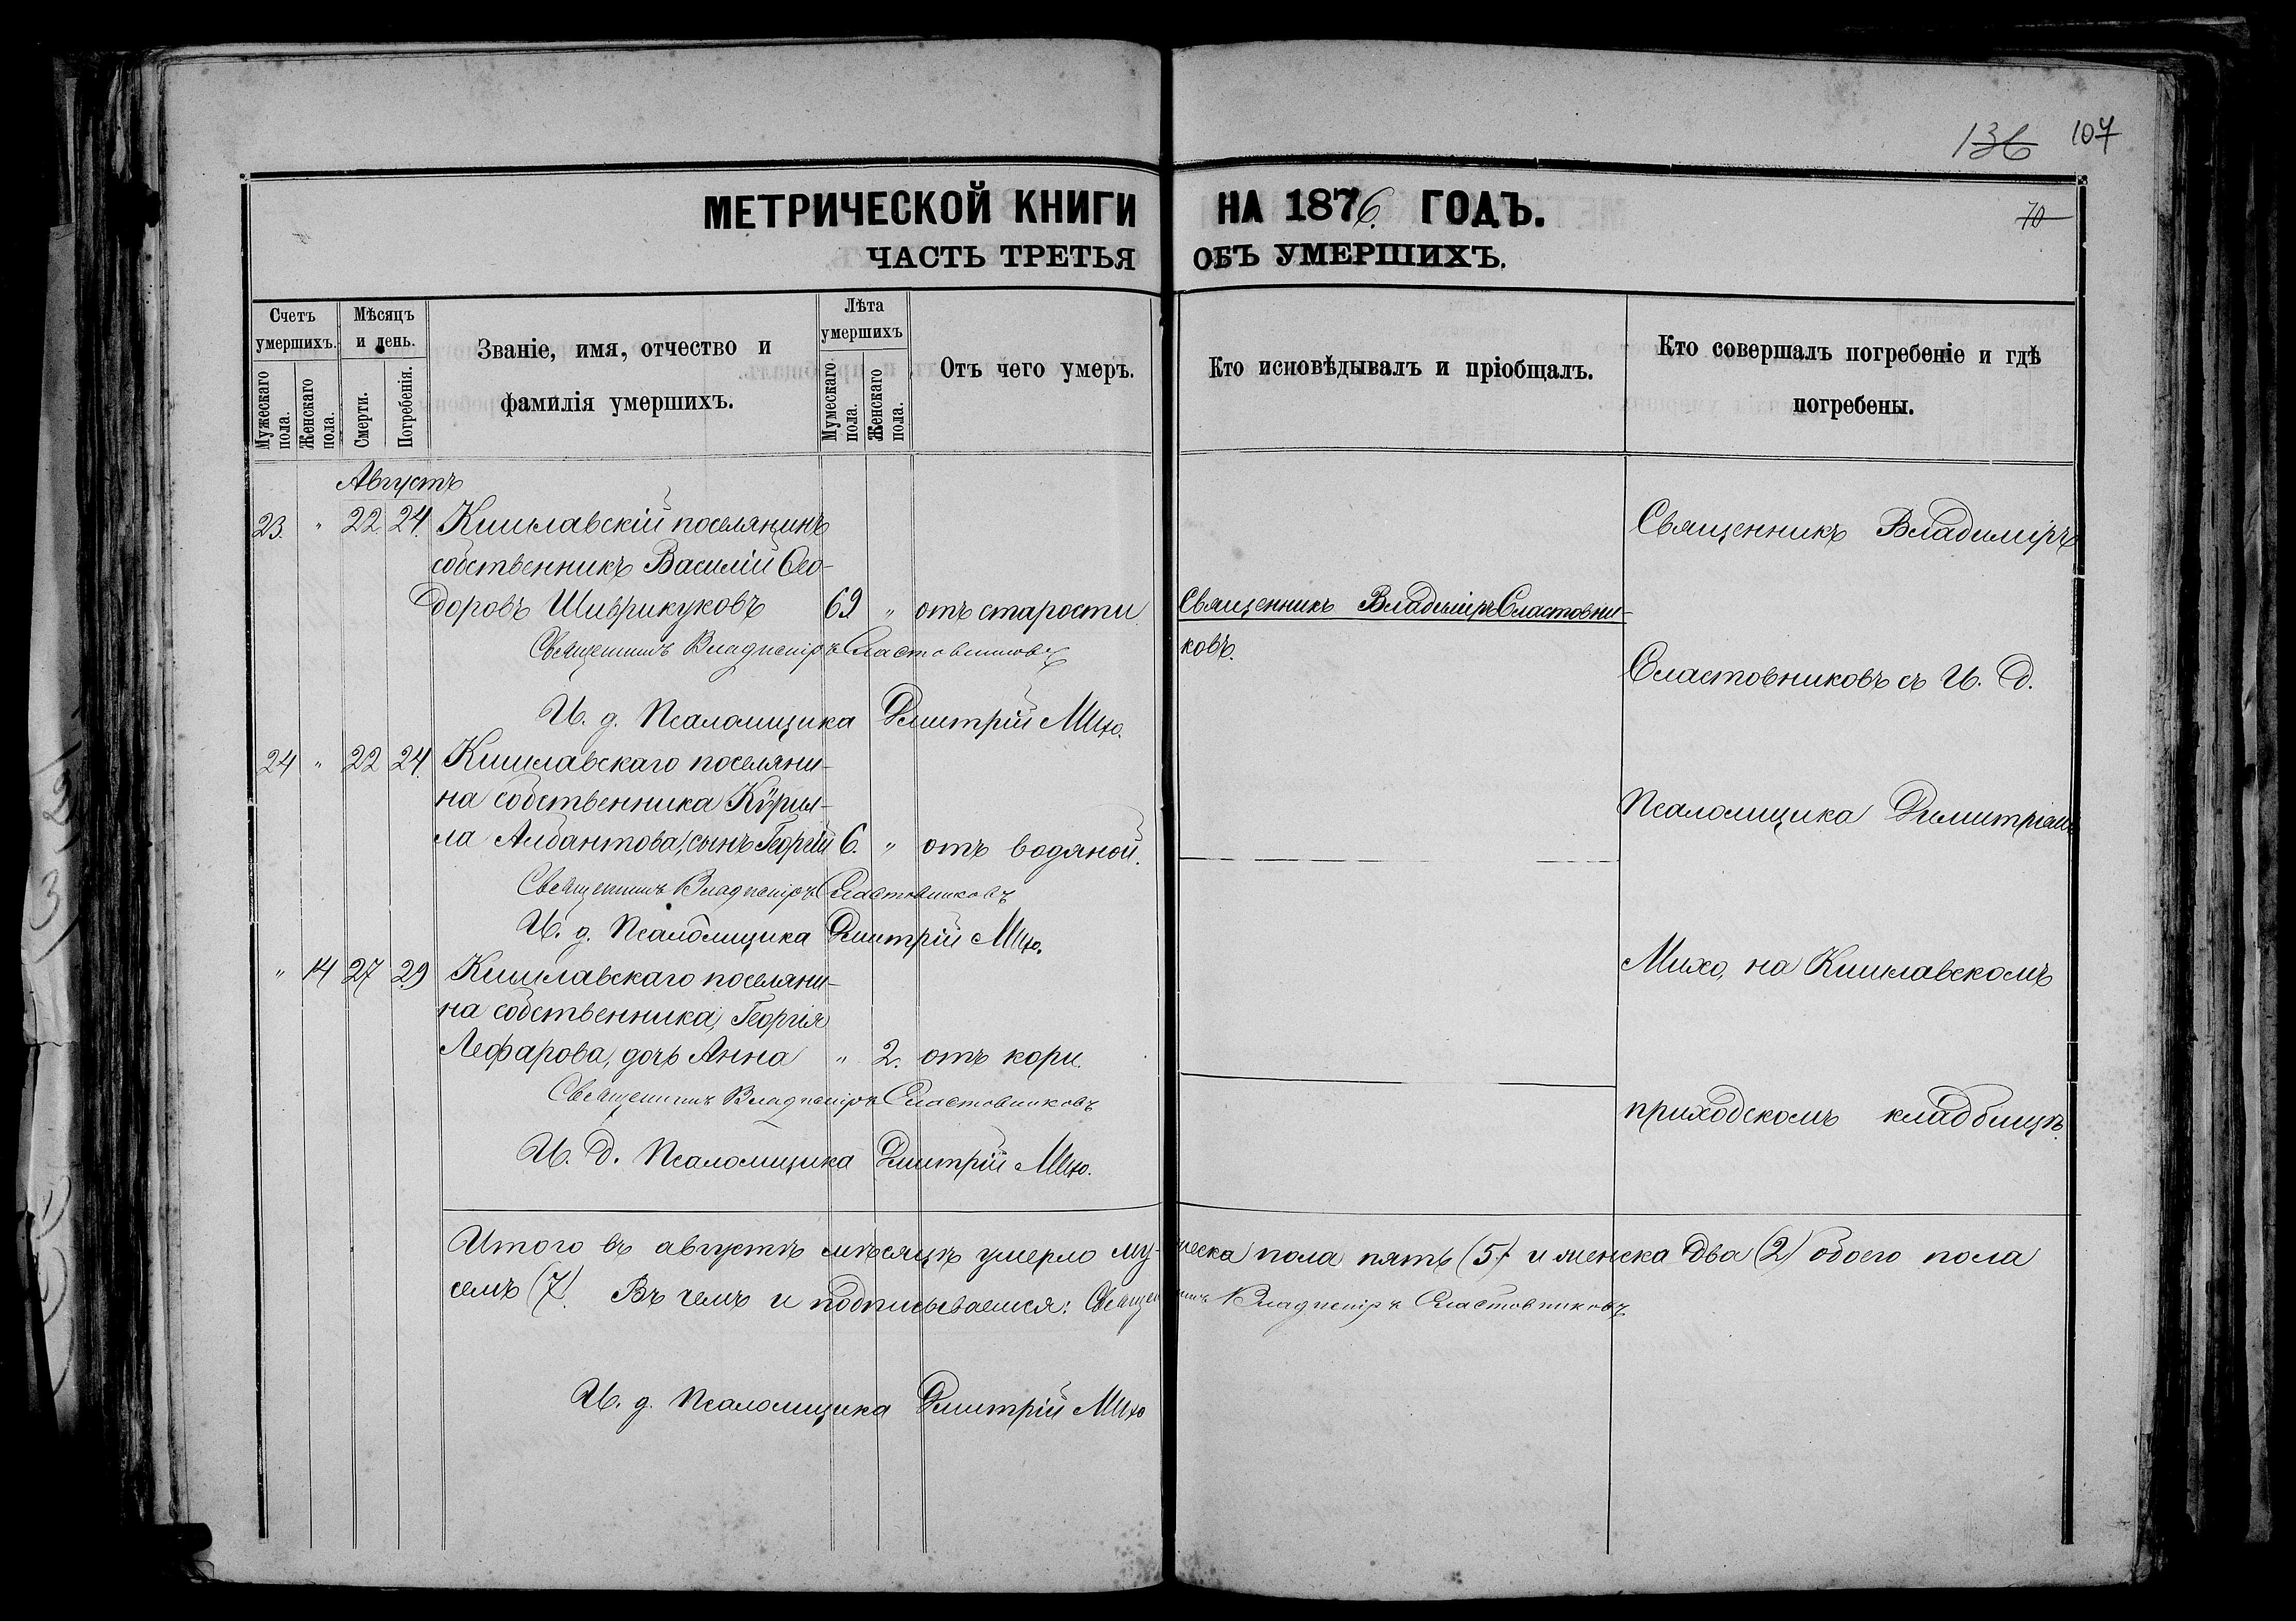 136 107
70
МЕТРИЧЕСКОЙ КНИГИ НА 1876. ГОДЪ.
ЧАСТЬ ТРЕТЬЯ ОБЪ УМЕРШИХЪ.
Счетъ умершихъ.
Мужескаго пола.
Женскаго пола.
Мѣсяцъ и день.
Смерти.
Погребенія.
Званіе, имя, отчество и
фамилія умершихъ.
Лѣта умершихъ
Мумескаго пола.
Женскаго пола.
Отъ чего умеръ.
Кто исповѣдывалъ и пріобщалъ.
Кто совершалъ погребеніе и гдѣ
погребены.
Августъ
23. " 22 24. Кишлавскій поселянинъ
собственникъ Василій Ѳео-
доровъ Шиврикуковъ 69 " отъ старости
Священникъ Владиміръ Сластовни-
ковъ.
Священникъ Владиміръ Сластовниковъ
И. д. Псаломщика Дмитрій Михо.
24 " 22 24. Кишлавскаго поселяни-
на собственника Кѵрил-
ла Албантова, сынъ Георгій 6. " отъ водяной.
Священникъ Владиміръ Сластовниковъ
И. д. Псаломщика Дмитрій Михо.
" 14 27 29 Кишлавскаго поселяни-
на собственника, Георгія
Лефарова, дочь Анна " 2. отъ кори.
Священникъ Владиміръ Сластовниковъ
И. Д. Псаломщика Дмитрій Михо.
Священникъ Владиміръ
Сластовниковъ съ И. Д.
Псаломщика Димитріемъ
Михо, на Кишлавскомъ
приходскомъ кладбищѣ.
Итого въ августѣ мѣсяцѣ умерло му-жеска пола пять (5) и женска два (2) обоего пола
семь (7). Въ чемъ и подписываемся: Священникъ Владиміръ Сластовниковъ
И. д. Псаломщика Дмитрій Михо